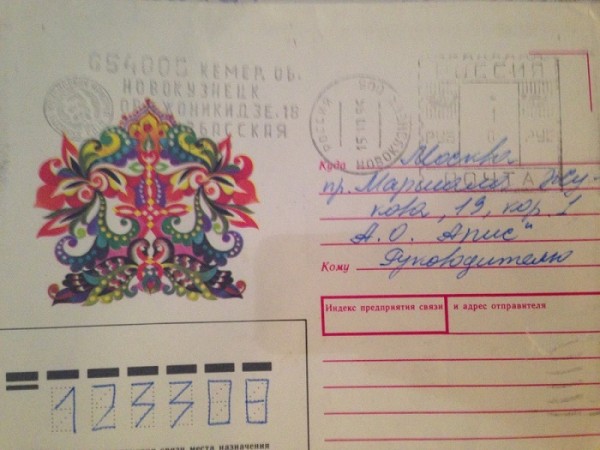 654005 КЕМЕР. ОБ.
НОВОКУЗНЕЦК
ОРДЖОНИКИДЗЕ, 18
РОССИЯ
ПОЧТА
РУБ
РУБ
РОССИЯ
НОВОКУЗНЕЦК
Куда Москва
пр. Маршала Жу-
кова, 13, кор. 1
А.О. Арис"
Кому Руководителю
Индекс предприятия связи и адрес отправителя
123308
связи места назначения